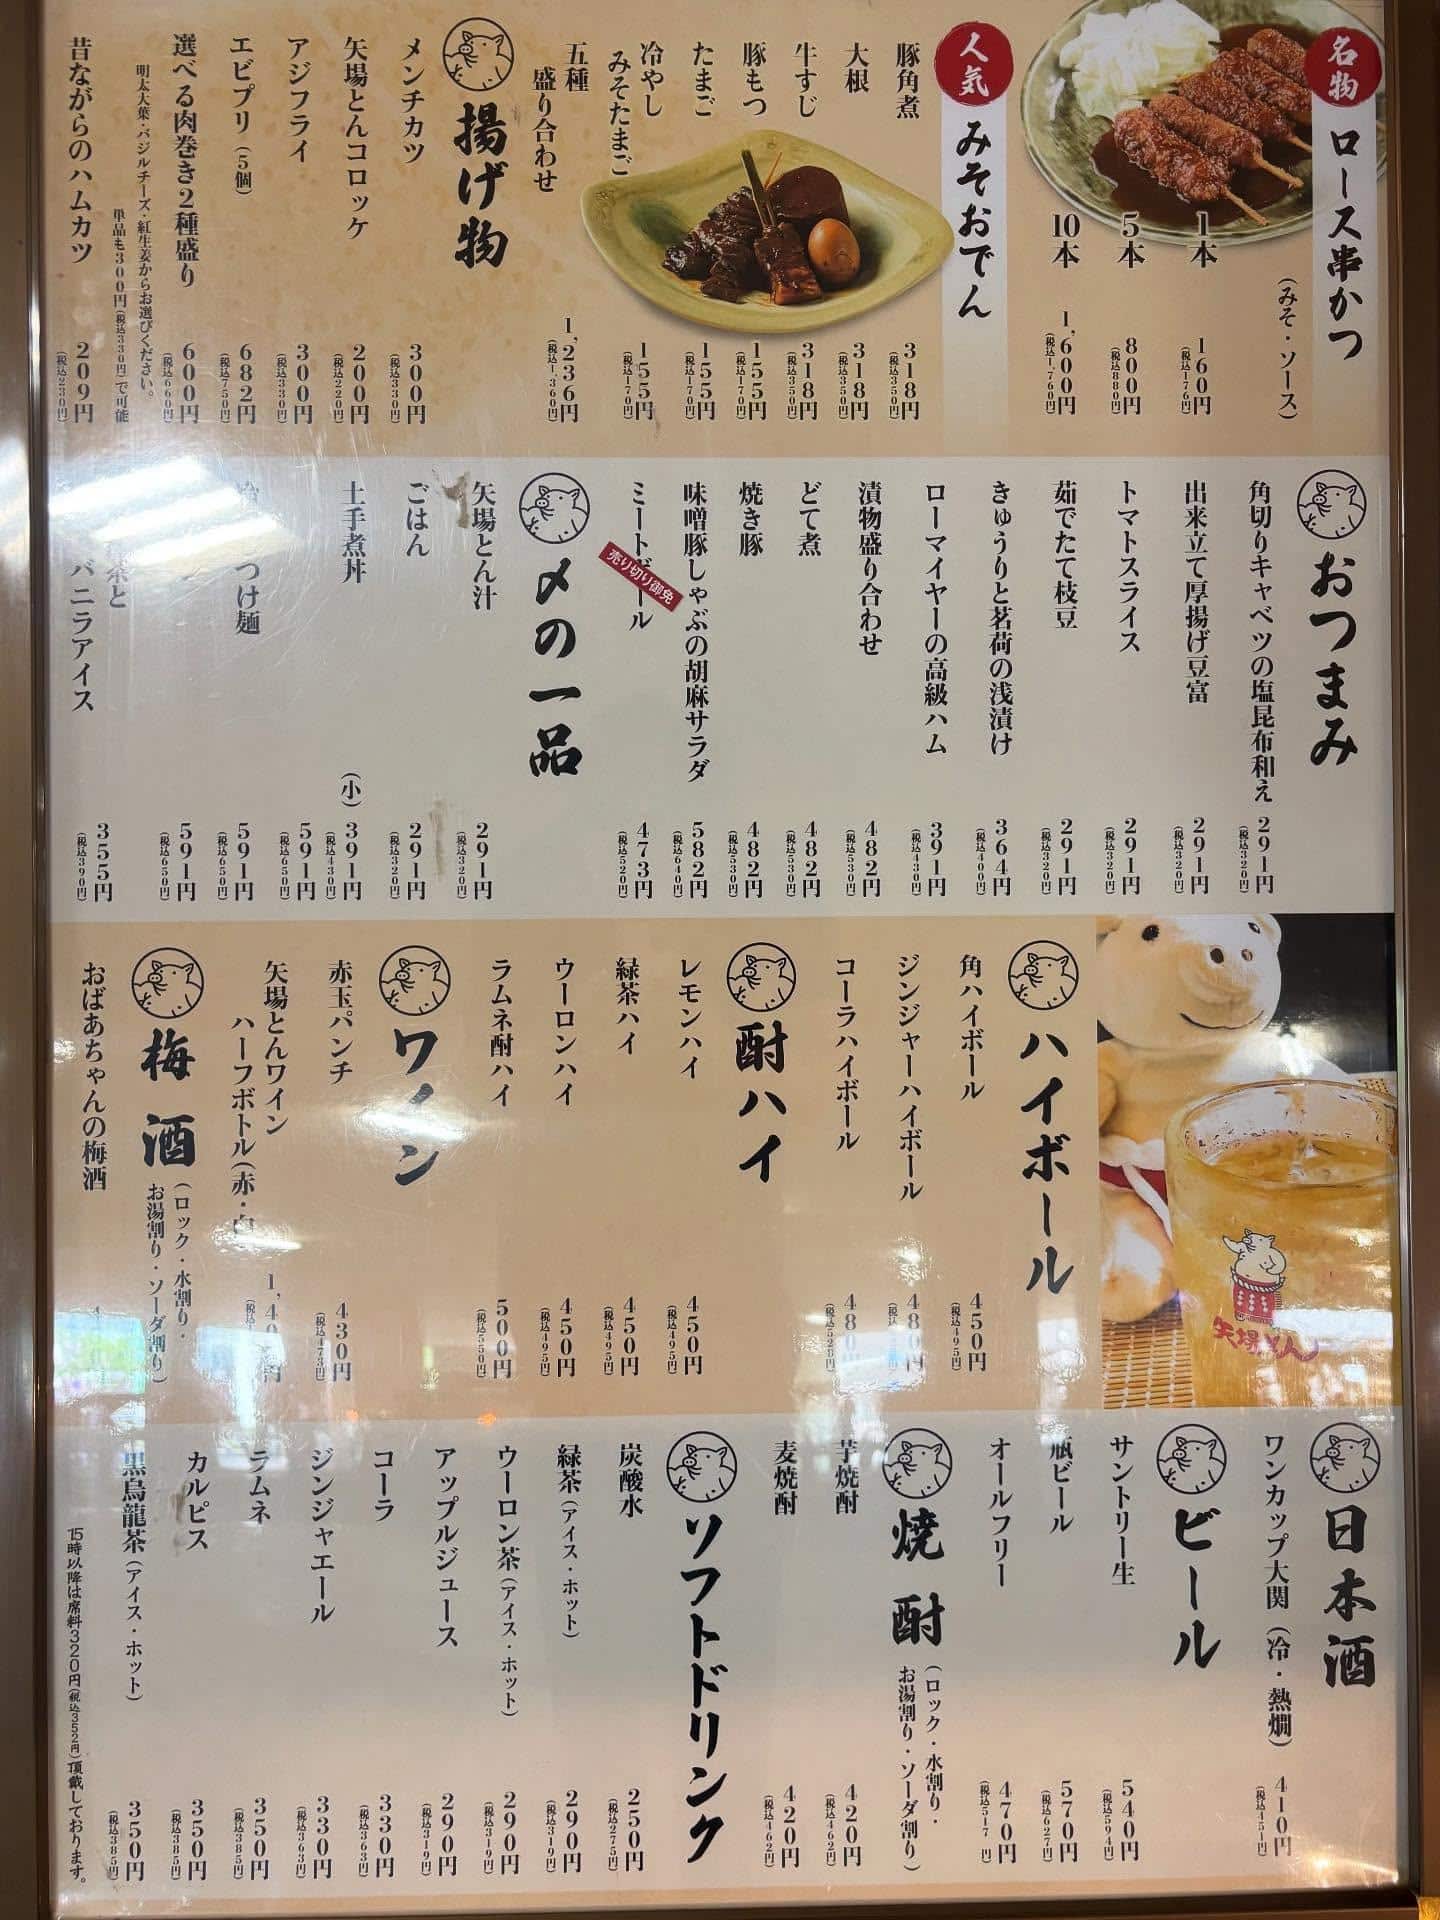 名物
ロース串かつ
（みそ・ソース）
1本 160円（税込176円）
5本 800円（税込880円）
10本 1,600円（税込1,760円）
人気
みそおでん
豚角煮 318円（税込350円）
大根 318円（税込350円）
牛すじ 318円（税込350円）
豚もつ 155円（税込170円）
たまご 155円（税込170円）
冷やし
みそたまご 155円（税込170円）
五種
盛り合わせ 1,236円（税込1,360円）
揚げ物
メンチカツ 300円（税込330円）
矢場とんコロッケ 200円（税込220円）
アジフライ 300円（税込330円）
エビプリ（5個） 682円（税込750円）
選べる肉巻き2種盛り 600円（税込660円）
明太大葉・バジルチーズ・紅生姜からお選びください。
単品も300円（税込330円）で可能
昔ながらのハムカツ 209円（税込230円）
おつまみ
角切りキャベツの塩昆布和え 291円（税込320円）
出来立て厚揚げ豆富 291円（税込320円）
トマトスライス 291円（税込320円）
茹でたて枝豆 291円（税込320円）
きゅうりと茗荷の浅漬け 364円（税込400円）
ローマイヤーの高級ハム 391円（税込430円）
漬物盛り合わせ 482円（税込530円）
どて煮 482円（税込530円）
焼き豚 482円（税込530円）
味噌豚しゃぶの胡麻サラダ 582円（税込640円）
ミートボール 473円（税込520円）
売り切り御免
〆の一品
矢場とん汁 291円（税込320円）
ごはん 291円（税込320円）
土手煮丼 （小）391円（税込430円）
591円（税込650円）
つけ麺 591円（税込650円）
591円（税込650円）
茶と
バニラアイス 355円（税込390円）
ハイボール
角ハイボール 450円（税込495円）
ジンジャーハイボール 480円（税込528円）
コーラハイボール 480円（税込528円）
酎ハイ
レモンハイ 450円（税込495円）
緑茶ハイ 450円（税込495円）
ウーロンハイ 450円（税込495円）
ラムネ酎ハイ 500円（税込550円）
ワイン
赤玉パンチ 430円（税込473円）
矢場とんワイン
ハーフボトル（赤・白）
梅酒
（ロック・水割り・
お湯割り・ソーダ割り）
おばあちゃんの梅酒
矢場とん
日本酒
ワンカップ大関（冷・熱燗） 410円（税込451円）
ビール
サントリー生 540円（税込594円）
瓶ビール 570円（税込627円）
オールフリー 470円（税込517円）
焼酎
（ロック・水割り・
お湯割り・ソーダ割り）
芋焼酎 420円（税込462円）
麦焼酎 420円（税込462円）
ソフトドリンク
炭酸水 250円（税込275円）
緑茶（アイス・ホット） 290円（税込319円）
ウーロン茶（アイス・ホット） 290円（税込319円）
アップルジュース 290円（税込319円）
コーラ 330円（税込363円）
ジンジャエール 330円（税込363円）
ラムネ 350円（税込385円）
カルピス 350円（税込385円）
黒烏龍茶（アイス・ホット） 350円（税込385円）
15時以降は席料320円（税込352円）頂戴しております。